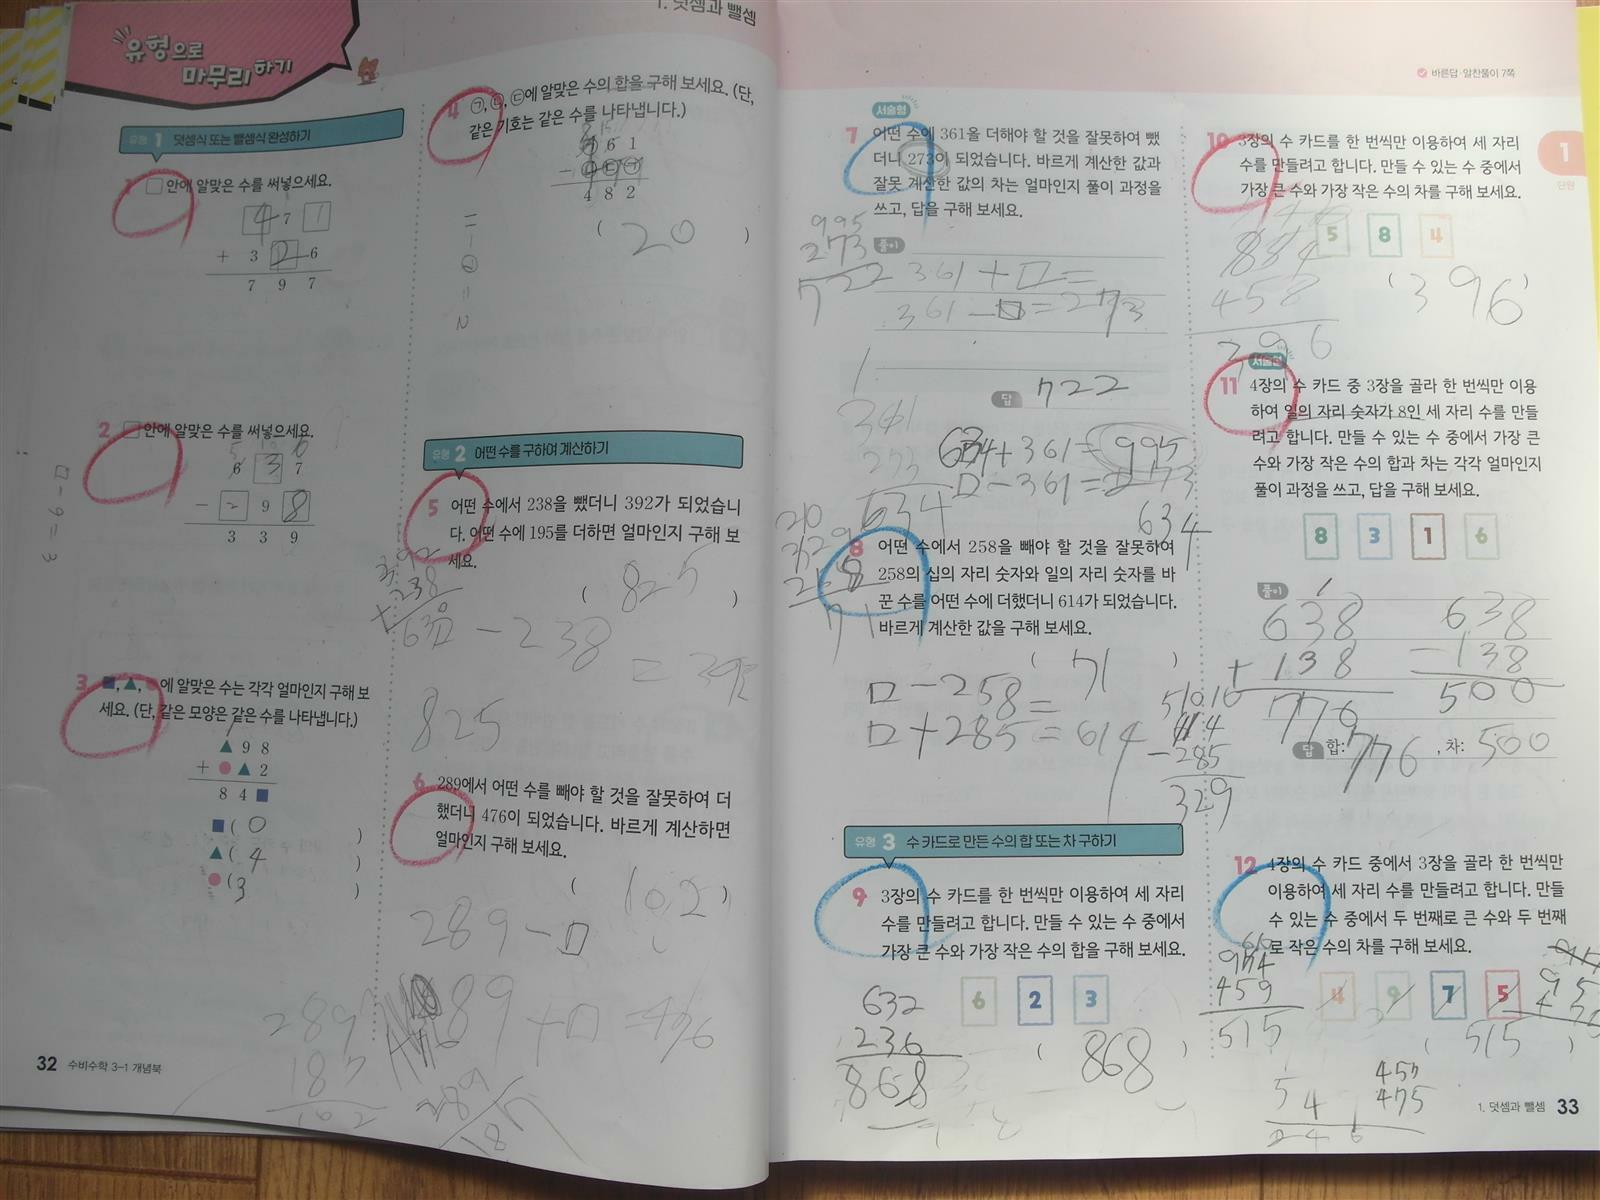 1. 덧셈과 뺄셈
유형으로
마무리하기
유형 1 덧셈식 또는 뺄셈식 완성하기
□ 안에 알맞은 수를 써넣으세요.
4 7 1
+ 3 2 6
7 9 7
2 □ 안에 알맞은 수를 써넣으세요.
6 3 7
- 2 9 8
3 3 9
□-9=3
3 ■, ▲, ●에 알맞은 수는 각각 얼마인지 구해 보
세요. (단, 같은 모양은 같은 수를 나타냅니다.)
▲ 9 8
+ ● ▲ 2
8 4 ■
■( 0 )
▲( 4 )
●( 3 )
32 수비수학 3-1 개념북
4 ㉠, ㉡, ㉢에 알맞은 수의 합을 구해 보세요. (단,
같은 기호는 같은 수를 나타냅니다.)
6 1
- ㉡㉢㉠
4 8 2
( 20 )
유형 2 어떤 수를 구하여 계산하기
5 어떤 수에서 238을 뺐더니 392가 되었습니
다. 어떤 수에 195를 더하면 얼마인지 구해 보
세요.
( 825 )
238
- 238
= 392
825
6 289에서 어떤 수를 빼야 할 것을 잘못하여 더
했더니 476이 되었습니다. 바르게 계산하면
얼마인지 구해 보세요.
( 102 )
289 - □
89 + □ = 476
289
187
102
바른답·알찬풀이 7쪽
서술형
7 어떤 수에 361을 더해야 할 것을 잘못하여 뺐
더니 273이 되었습니다. 바르게 계산한 값과
잘못 계산한 값의 차는 얼마인지 풀이 과정을
쓰고, 답을 구해 보세요.
995
273
722
풀이
361 + □ =
361 - □ = 273
답 722
361
273
634
634 + 361 = 995
□ - 361 = 273
634
8 어떤 수에서 258을 빼야 할 것을 잘못하여
258의 십의 자리 숫자와 일의 자리 숫자를 바
꾼 수를 어떤 수에 더했더니 614가 되었습니다.
바르게 계산한 값을 구해 보세요.
( 71 )
□ - 258 =
□ + 285 = 614
614
- 285
329
유형 3 수 카드로 만든 수의 합 또는 차 구하기
9 3장의 수 카드를 한 번씩만 이용하여 세 자리
수를 만들려고 합니다. 만들 수 있는 수 중에서
가장 큰 수와 가장 작은 수의 합을 구해 보세요.
6 2 3
632
236
868
( 868 )
10 3장의 수 카드를 한 번씩만 이용하여 세 자리
수를 만들려고 합니다. 만들 수 있는 수 중에서
가장 큰 수와 가장 작은 수의 차를 구해 보세요.
5 8 4
458
( 396 )
서술형
11 4장의 수 카드 중 3장을 골라 한 번씩만 이용
하여 일의 자리 숫자가 8인 세 자리 수를 만들
려고 합니다. 만들 수 있는 수 중에서 가장 큰
수와 가장 작은 수의 합과 차는 각각 얼마인지
풀이 과정을 쓰고, 답을 구해 보세요.
8 3 1 6
풀이
638 638
+ 138 - 138
776 500
답 합: 776 , 차: 500
12 4장의 수 카드 중에서 3장을 골라 한 번씩만
이용하여 세 자리 수를 만들려고 합니다. 만들
수 있는 수 중에서 두 번째로 큰 수와 두 번째
로 작은 수의 차를 구해 보세요.
4 9 7 5
974
459
515
( 515 )
457
475
1
단원
1. 덧셈과 뺄셈 33